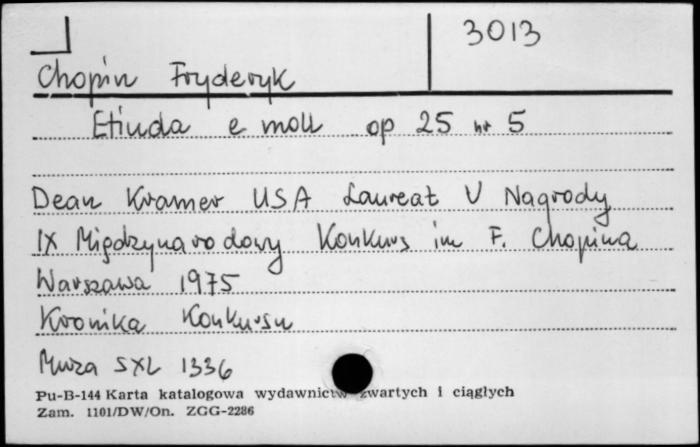 3013
Chopin Fryderyk
Etiuda e moll op 25 nr 5
Dean Kramer USA Laureat V Nagrody
IX Międzynarodowy Konkurs im F. Chopina
Warszawa 1975
Kronika Konkursu
Muza SXL 1336
Pu-B-144 Karta katalogowa wydawnictw zwartych i ciągłych
Zam. 1101/DW/On. ZGG-2286